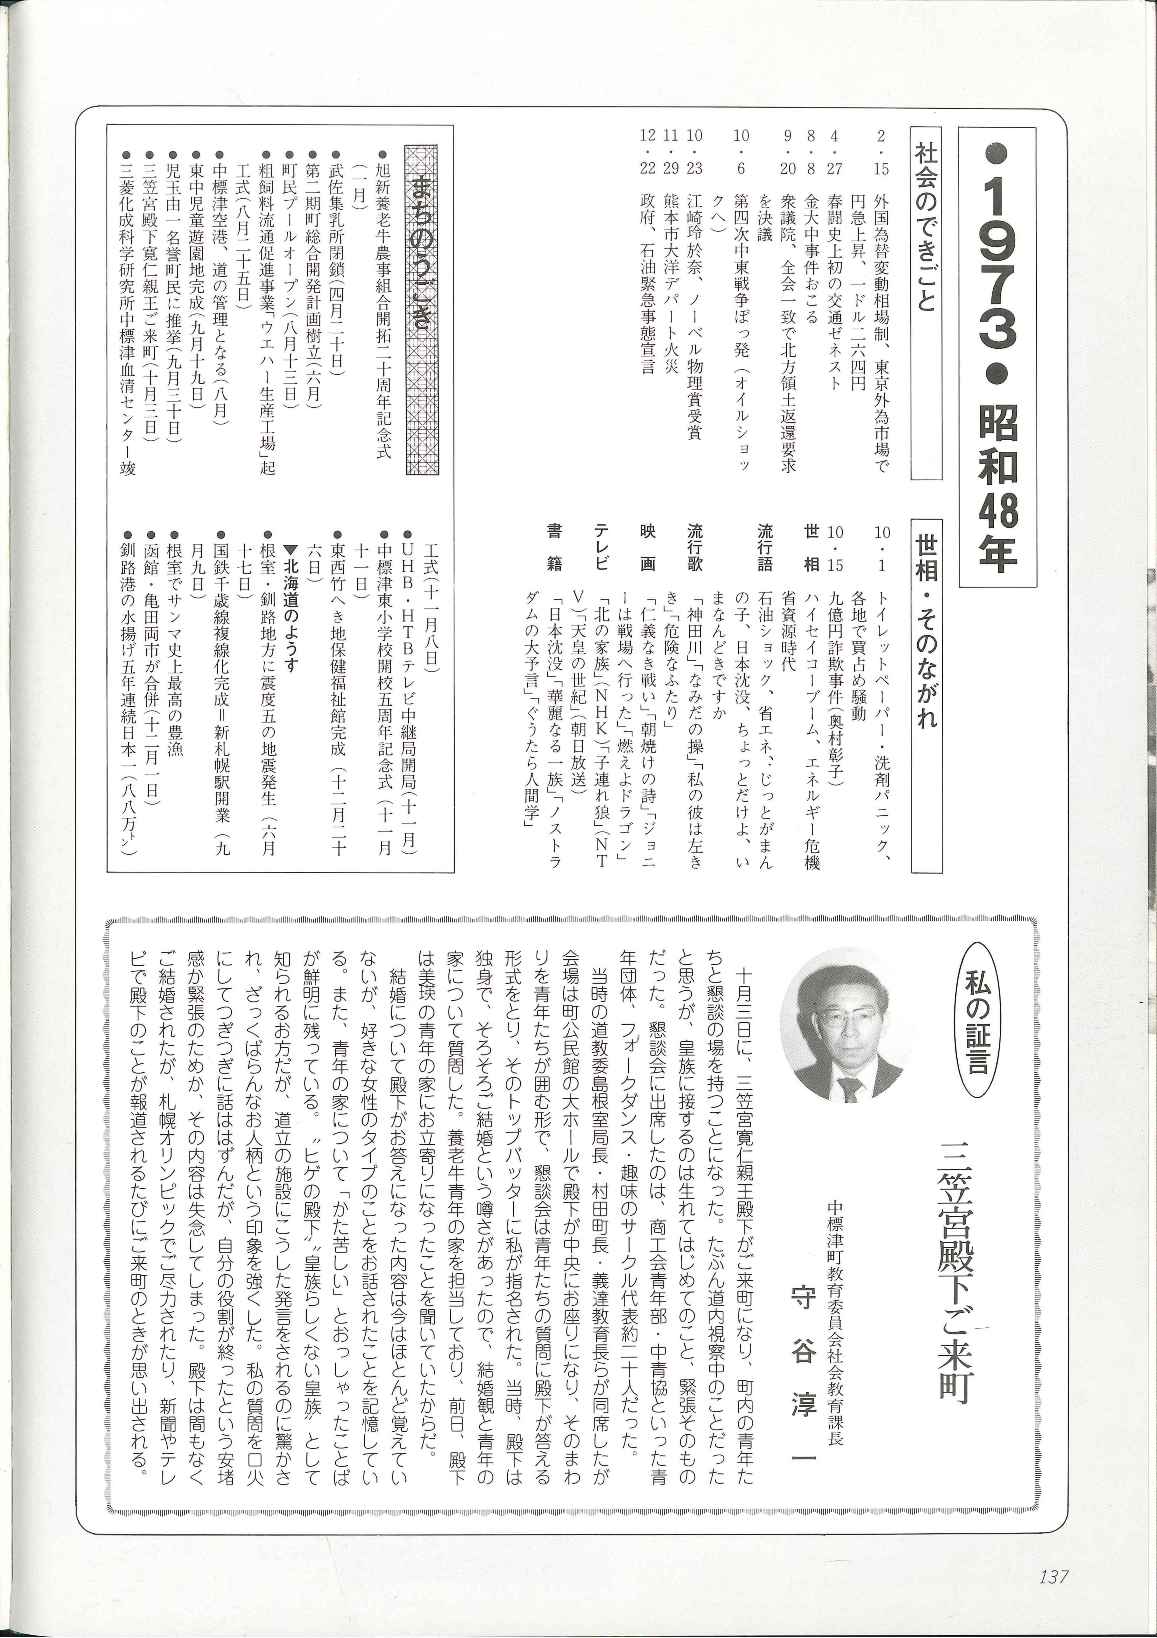 ●1973●昭和48年
社会のできごと
2・15　外国為替変動相場制、東京外為市場で
円急上昇、一ドル二六四円
4・27　春闘史上初の交通ゼネスト
8・8　金大中事件おこる
9・20　衆議院、全会一致で北方領土返還要求
を決議
10・6　第四次中東戦争ぼっ発（オイルショッ
クへ）
10・23　江崎玲於奈、ノーベル物理賞受賞
11・29　熊本市大洋デパート火災
12・22　政府、石油緊急事態宣言
世相・そのながれ
10・1　トイレットペーパー・洗剤パニック、
各地で買占め騒動
10・15　九億円詐欺事件（奥村彰子）
世相　ハイセイコーブーム、エネルギー危機
省資源時代
流行語　石油ショック、省エネ、じっとがまん
の子、日本沈没、ちょっとだけよ、い
まなんどきですか
流行歌　「神田川」「なみだの操」「私の彼は左き
き」「危険なふたり」
映画　「仁義なき戦い」「朝焼けの詩」「ジョニ
ーは戦場へ行った」「燃えよドラゴン」
テレビ　「北の家族」（NHK）「子連れ狼」（NT
V）「天皇の世紀」（朝日放送）
書籍　「日本沈没」「華麗なる一族」「ノストラ
ダムの大予言」「ぐうたら人間学」
まちのうごき
●旭新養老牛農事組合開拓二十周年記念式
（一月）
●武佐集乳所閉鎖（四月二十日）
●第二期町総合開発計画樹立（六月）
●町民プールオープン（八月十三日）
●粗飼料流通促進事業「ウエハー生産工場」起
工式（八月二十五日）
●中標津空港、道の管理となる（八月）
●東中児童遊園地完成（九月十九日）
●児玉由一名誉町民に推挙（九月三十日）
●三笠宮殿下寛仁親王ご来町（十月三日）
●三菱化成科学研究所中標津血清センター竣
工式（十一月八日）
●UHB・HTBテレビ中継局開局（十一月）
●中標津東小学校開校五周年記念式（十一月
十一日）
●東西竹へき地保健福祉館完成（十二月二十
六日）
▼北海道のようす
●根室・釧路地方に震度五の地震発生（六月
十七日）
●国鉄千歳線複線化完成＝新札幌駅開業（九
月九日）
●根室でサンマ史上最高の豊漁
●函館・亀田両市が合併（十二月一日）
●釧路港の水揚げ五年連続日本一（八八万トン）
私の証言
三笠宮殿下ご来町
中標津町教育委員会社会教育課長
守谷淳一
十月三日に、三笠宮寛仁親王殿下がご来町になり、町内の青年た
ちと懇談の場を持つことになった。たぶん道内視察中のことだった
と思うが、皇族に接するのは生れてはじめてのこと、緊張そのもの
だった。懇談会に出席したのは、商工会青年部・中青協といった青
年団体、フォークダンス・趣味のサークル代表約二十人だった。
当時の道教委島根室局長・村田町長・義達教育長らが同席したが
会場は町公民館の大ホールで殿下が中央にお座りになり、そのまわ
りを青年たちが囲む形で、懇談会は青年たちの質問に殿下が答える
形式をとり、そのトップバッターに私が指名された。当時、殿下は
独身で、そろそろご結婚という噂さがあったので、結婚観と青年の
家について質問した。養老牛青年の家を担当しており、前日、殿下
は美瑛の青年の家にお立寄りになったことを聞いていたからだ。
結婚について殿下がお答えになった内容は今はほとんど覚えてい
ないが、好きな女性のタイプのことをお話されたことを記憶してい
る。また、青年の家について「かた苦しい」とおっしゃったことば
が鮮明に残っている。〝ヒゲの殿下〟〝皇族らしくない皇族〟として
知られるお方だが、道立の施設にこうした発言をされるのに驚かさ
れ、ざっくばらんなお人柄という印象を強くした。私の質問を口火
にしてつぎつぎに話ははずんだが、自分の役割が終ったという安堵
感か緊張のためか、その内容は失念してしまった。殿下は間もなく
ご結婚されたが、札幌オリンピックでご尽力されたり、新聞やテレ
ビで殿下のことが報道されるたびにご来町のときが思い出される。
137